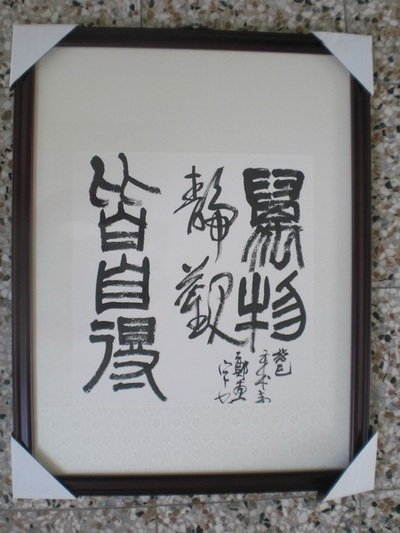 萬物
靜觀
皆自得
癸巳
鄭